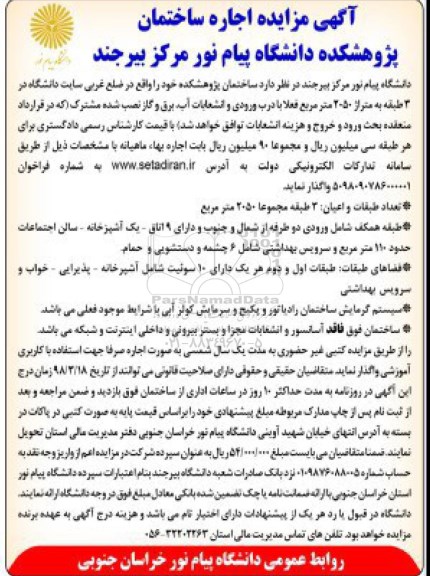 آگهی مزایده اجاره ساختمان
پژوهشکده دانشگاه پیام نور مرکز بیرجند
دانشگاه پیام نور مرکز بیرجند در نظر دارد ساختمان پژوهشکده خود را واقع در ضلع غربی سایت دانشگاه در
۳ طبقه به متراژ ۲۰۵۰ متر مربع فعلا با درب ورودی و انشعابات آب، برق و گاز نصب شده مشترک (که در قرارداد
منعقده بحث ورود و خروج و هزینه انشعابات توافق خواهد شد) با قیمت کارشناس رسمی دادگستری برای
هر طبقه سی میلیون ریال و مجموعا ۹۰ میلیون ریال بابت اجاره بهاء ماهیانه با مشخصات ذیل از طریق
سامانه تدارکات الکترونیکی دولت به آدرس www.setadiran.ir به شماره فراخوان
۵۰۹۸۰۹۰۷۸۶۰۰۰۰۰۱ واگذار نماید.
*تعداد طبقات و اعیان: ۳ طبقه مجموعا ۲۰۵۰ متر مربع
*طبقه همکف شامل ورودی دو طرفه از شمال و جنوب و دارای ۱۹اتاق - یک آشپزخانه - سالن اجتماعات
حدود ۱۱۰ متر مربع و سرویس بهداشتی شامل ۶ چشمه و دستشویی و حمام.
*فضاهای طبقات: طبقات اول و دوم هر یک دارای ۱۰ سوئیت شامل آشپزخانه - پذیرایی - خواب و
سرویس بهداشتی
*سیستم گرمایش ساختمان رادیاتور و پکیج و سرمایش کولر آبی با شرایط موجود فعلی می باشد.
* ساختمان فوق فاقد آسانسور و انشعابات مجزا و بستر بیرونی و داخلی اینترنت و شبکه می باشد.
را از طریق مزایده کتبی غیر حضوری به مدت یک سال شمسی به صورت اجاره صرفا جهت استفاده با کاربری
آموزشی واگذار نماید. متقاضیان حقیقی و حقوقی دارای صلاحیت قانونی می توانند از تاریخ ۹۸/۳/۱۸ زمان درج
این آگهی در روزنامه به مدت حداکثر ۱۰ روز در ساعات اداری از ساختمان فوق بازدید و ضمن مراجعه و بعد
از ثبت نام پس از چاپ مدارک مربوطه مبلغ پیشنهادی خود را براساس قیمت پایه به صورت کتبی در پاکات در
بسته به آدرس انتهای خیابان شهید آوینی دانشگاه پیام نور خراسان جنوبی دفتر مدیریت مالی استان تحویل
نمایند. ضمنا متقاضیان می بایست مبلغ ۵۴/۰۰۰/۰۰۰ ریال به عنوان سپرده شرکت در مزایده اعم از واریز وجه نقد به
حساب شماره ۰۱۰۹۸۷۶۰۸۸۰۰۵ نزد بانک صادرات شعبه دانشگاه بیرجند بنام اعتبارات سپرده دانشگاه پیام نور
استان خراسان جنوبی یا ارائه ضمانت نامه یا چک تضمین شده بانکی معادل مبلغ فوق در وجه دانشگاه ارائه نمایند.
دانشگاه در قبول یا رد هر یک از پیشنهادات دارای اختیار تام می باشد و هزینه درج آگهی به عهده برنده
مزایده خواهد بود. تلفن های تماس مدیریت مالی استان ۳۲۲۰۲۲۶۳-۰۵۶
روابط عمومی دانشگاه پیام نور خراسان جنوبی
ParsNamadData